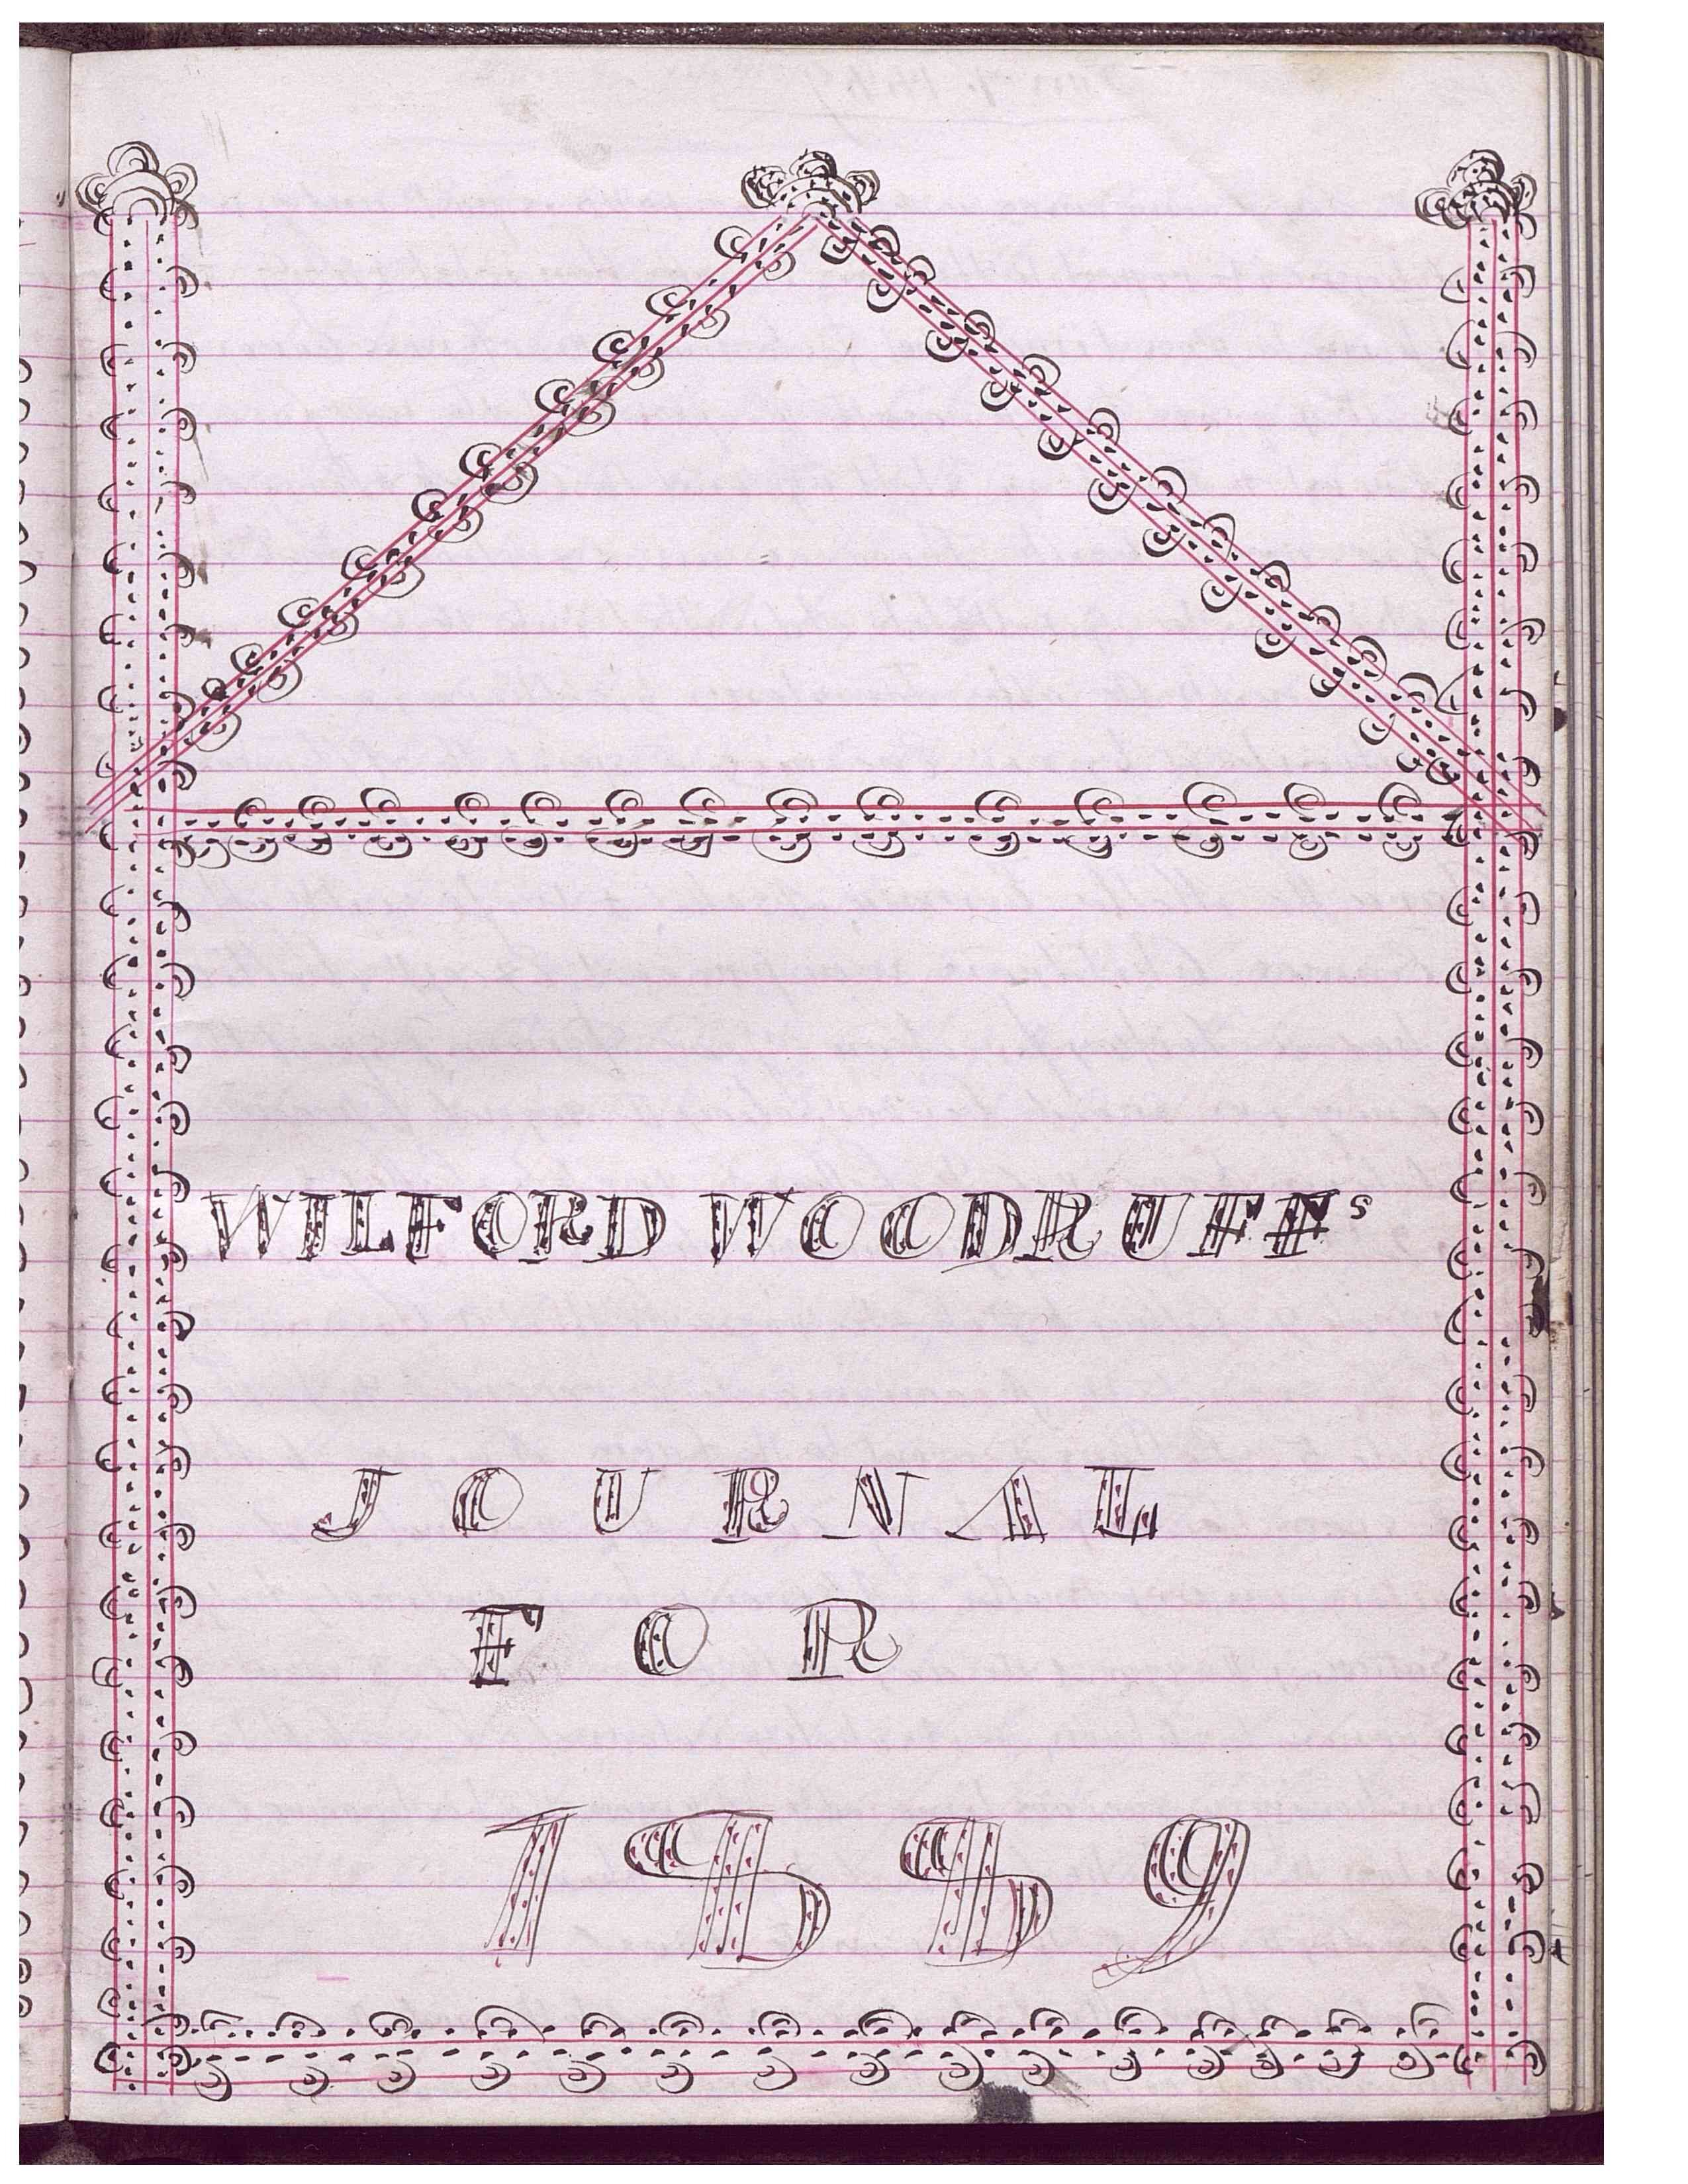 WILFORD WOODRUFFs
JOURNAL
FOR
1889